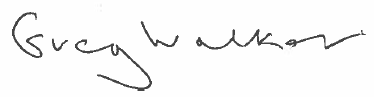 Greg Walker